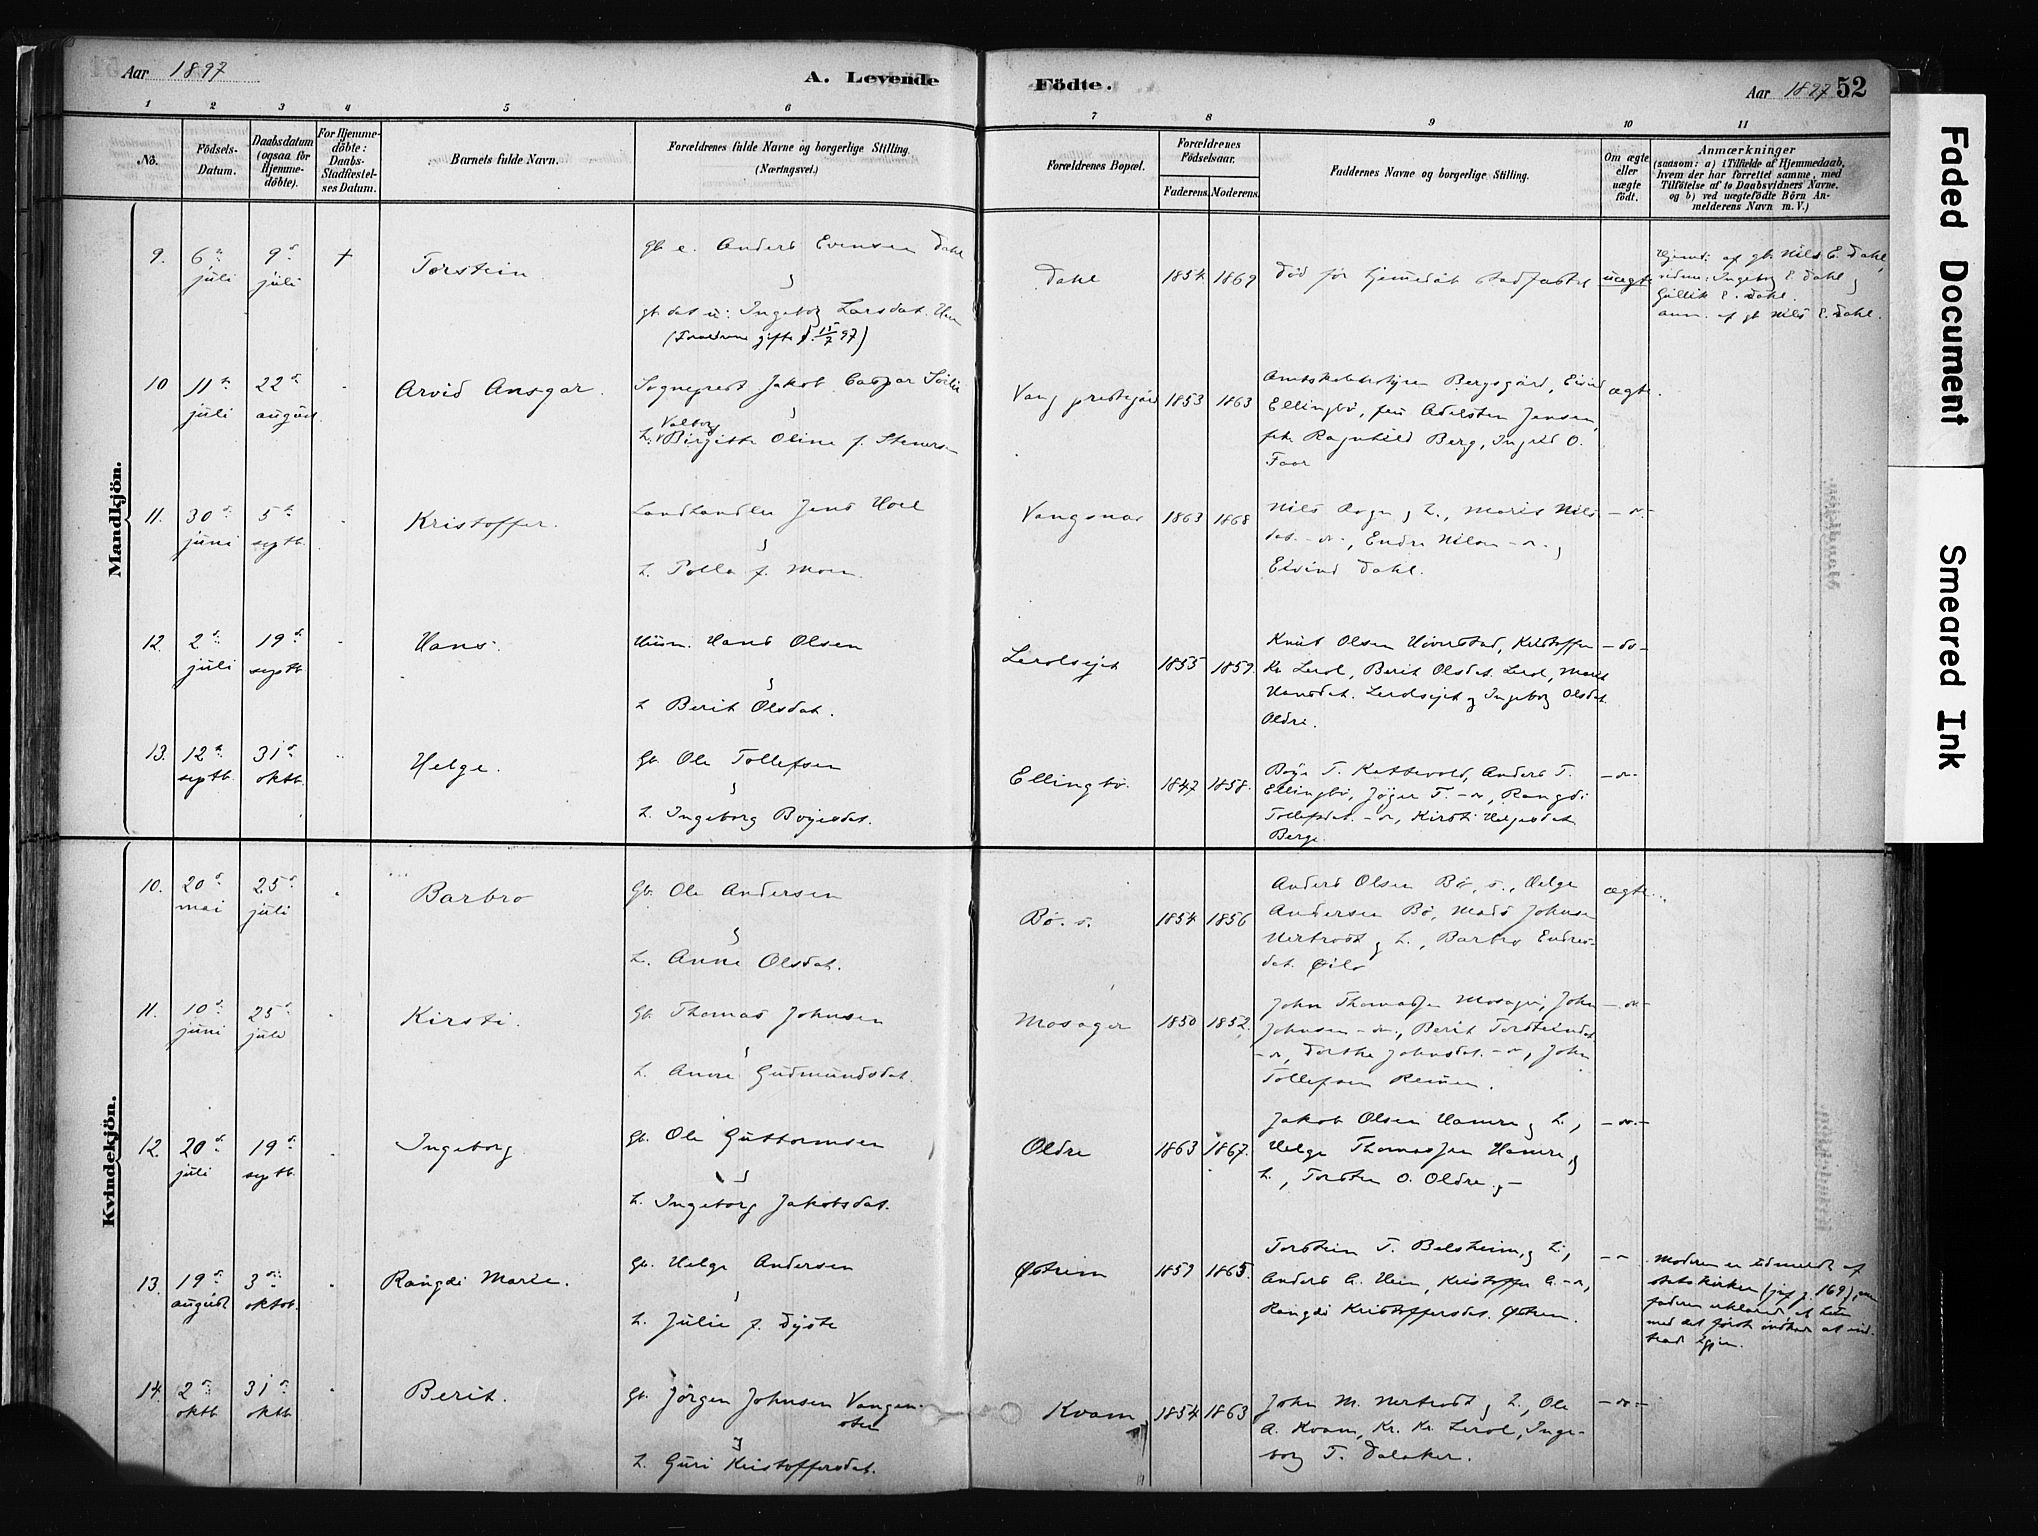 Aar 1897
A. Levende Födte.
Aar 1897 52
1 2 3 4 5 6 7 8 9 10 11
No.
Födsels-
Datum.
Daabsdatum
(ogsaa for
Hjemme-
döbte).
For Hjemme-
döbte:
Daabs-
Stadfæstel-
ses Datum.
Barnets fulde Navn.
Forældrenes fulde Navne og borgerlige Stilling.
(Næringsvei.)
Forældrenes Bopæl.
Forældrenes
Födselsaar.
Faderens. Moderens.
Faddernes Navne og borgerlige Stilling.
Om ægte
eller
uægte
födt.
Anmærkninger
(saasom: a) i Tilfælde af Hjemmedaab,
hvem der har forrettet samme, med
Tilföielse af to Daabsvidners Navne.
og b) ved uægtefödte Börn An-
melderens Navn m. V.)
Mandkjön.
9. 6 juli 9 juli + Torstein
gb. e. Anders Evensen Dahl
gb. dat. u: Ingeborg Larsdat.
(Forældrene gifte 15/7 97)
Dahl 1854 1869 Død før hjemmedåb stadfæstet uægte
Hjemd. af gb. Nils E. Dahl,
vidner: Ingeborg E. Dahl
Gullik E. Dahl.
anm. af gb. Nils E. Dahl.
10 11 juli 22 august Arvid Ansgar.
Sogneprest Jakob Caspar
h. Valborg Birgitte Oline f.
Vang prestegård 1853 1863
Bergsgård, Eivind
Ellingbø, fru Adelsten Jensen,
frk. Ragnhild Berg, Ingrid O.
ægte.
11. 30 juni 5 septb. Kristoffer.
Landhandler Jens Hoel
h. Tolla f. Moen.
Vangsnes 1863 1868
Nils Rogn & h., Marit Nils
dat. -do-, Endre Nilsen -do-
Eivind Dahl.
-do-
12. 2 juli 19 septb. Hans.
Husm. Hans Olsen
h. Berit Olsdat.
Lerolsejet 1855 1859.
Knut Olsen Hiverstad, Kristoffer
Kr. Lerol, Berit Olsdat. Lerol, Marit
Hansdat. Lerolsejet & Ingeborg Olsdat.
Oldre.
-do-
13. 12 septb. 31 oktb. Helge.
Gb. Ole Tollefsen
h. Ingeborg Boyesdat.
Ellingbø. 1847 1858.
Boye T. Kattevold, Anders T.
Ellingbø, T. -do-, Rangdi
Tollefsdat. -do-, Kirsti Helgesdat.
Berge.
-do-
Kvindekjön.
10. 20 mai 25 juli Barbro
Gb. Ole Andersen
h. Anne Olsdat.
Bø. s. 1854 1856
Anders Olsen Bø, s., Helge
Andersen Bø, Mads Johnsen
& h., Barbro Endres-
dat. Øilo
ægte.
11. 10 juni 25 juli Kirsti.
Gb. Thomas Johnsen
h. Anne Gudmundsdat.
Mosager 1850 1852.
John Thomassen Mosager, John
Johnsen -do-, Berit Torsteinsdat
-do-, Dorthe Johnsdat. -do-, John
Tollefsen
-do-
12. 20 juli 19 septb. Ingeborg
Gb. Ole Guttormsen
h. Ingeborg Jakobsdat.
Oldre 1863 1867.
Jakob Olsen Hamre & h.,
Helge Thomassen Hamre &
h., Torsten O. Oldre.
-do-
13. 19 august 3 oktob. Rangdi Marie.
Gb. Helge Andersen
h. Julie f. Dyste
Østrem 1859 1865.
Torstein T. Belsheim, & h.,
Anders A. Hem, Kristoffer A. -do-,
Rangdi Kristoffersdat. Østrem.
Moderen er udmeldt af
statskirken (jvf. p. 169), men
faderen erklærede at hun
med det første ønskede at ind-
træde igjen.
14. 2 oktb 31 oktb Berit.
Gb. Jörgen Johnsen Vangen
h. Guri Kristoffersdat.
Kvam 1854 1863
John M. & h., Ole
A. Kvam, Kr. Kr. Lerol, Inge-
borg T. Dalaker.
-do-
Faded Document
Smeared Ink